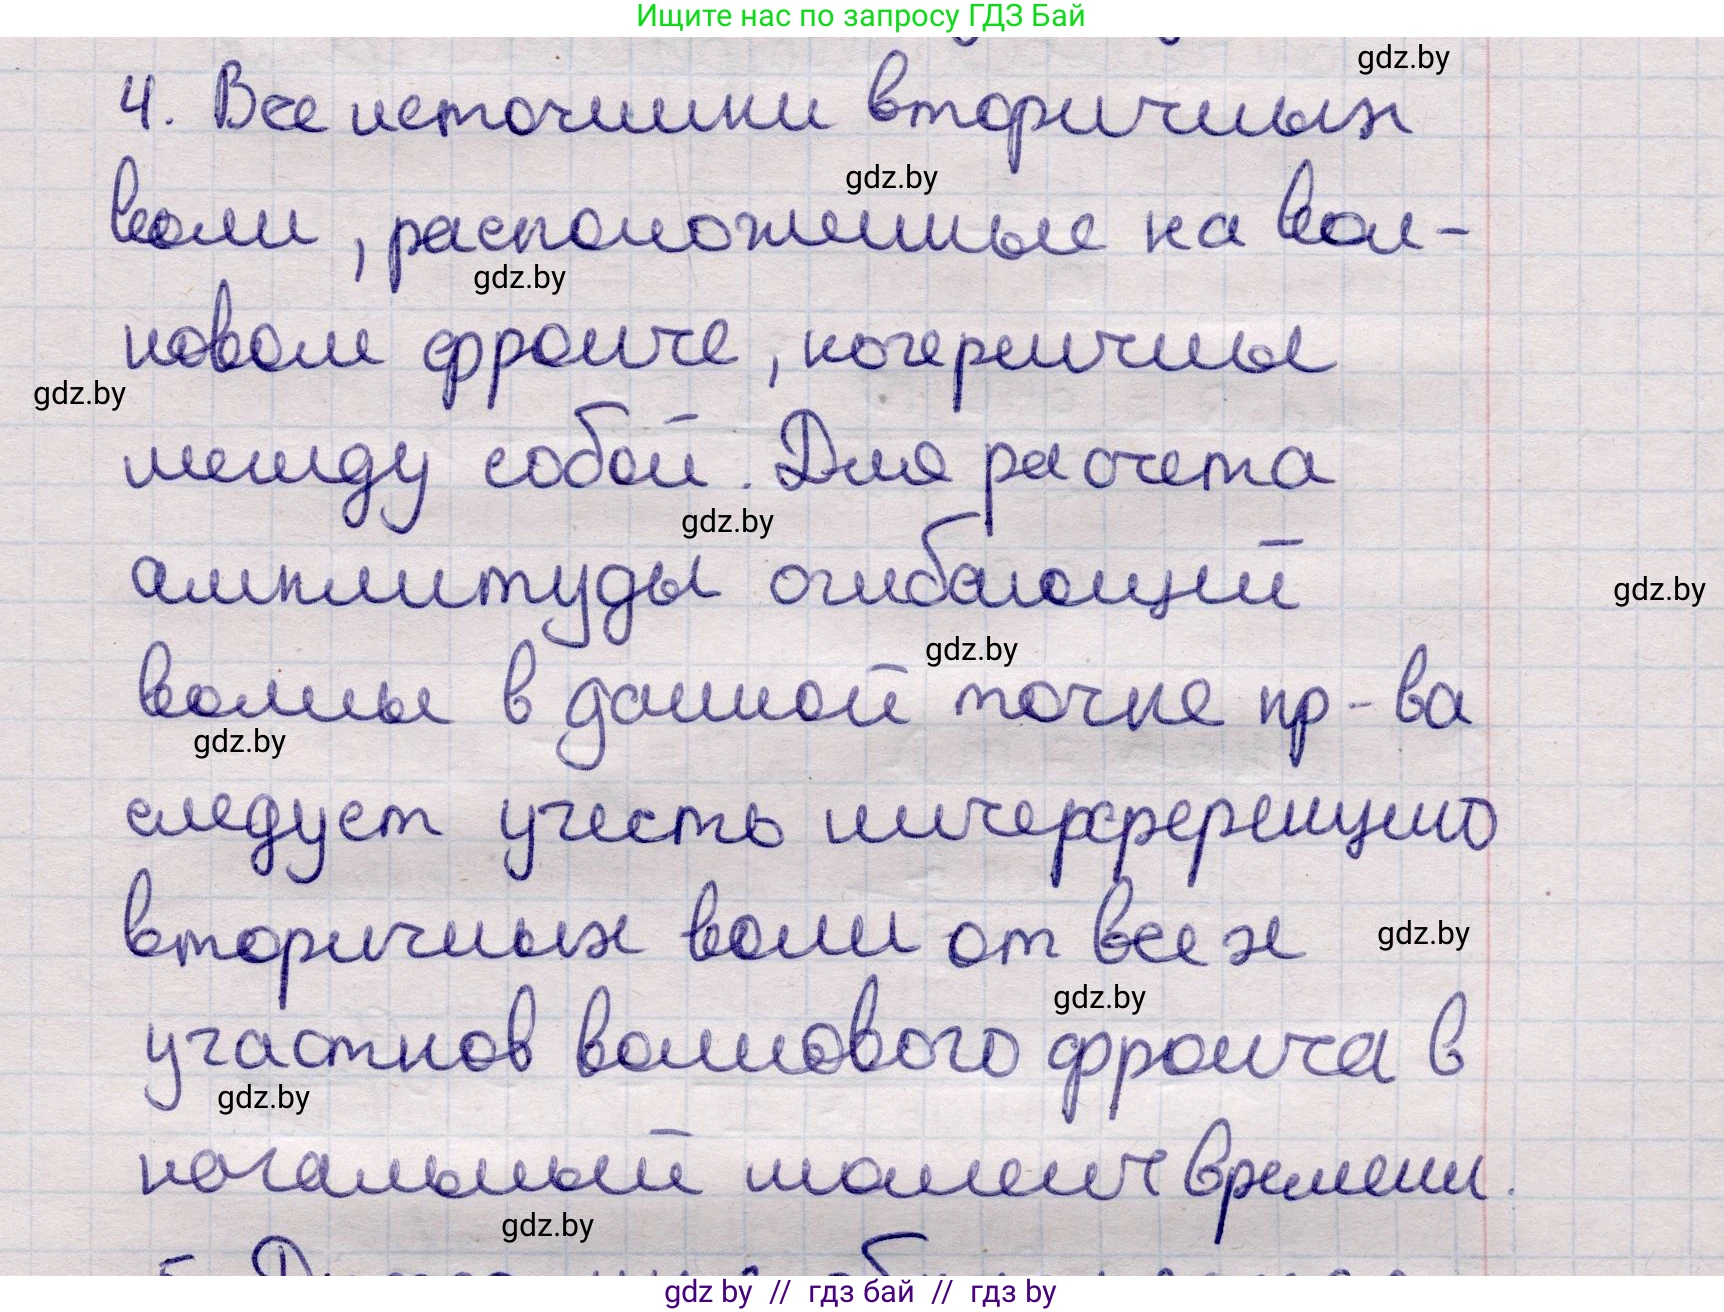 Ищите нас по запросу ГДЗ Бай
gdz.by
4. Все источники вторичных
gdz.by
волн, расположенные на вол-
gdz.by
новом фронте, когерентны
gdz.by
между собой. Для расчета
gdz.by
амплитуды огибающей
gdz.by
gdz.by
волны в данной точке пр-ва
gdz.by
следует учесть интерференцию
вторичных волн от всех
gdz.by
gdz.by
участков волнового фронта в
gdz.by
начальный момент времени.
gdz.by
5.
gdz by // гдз бай // гдз by